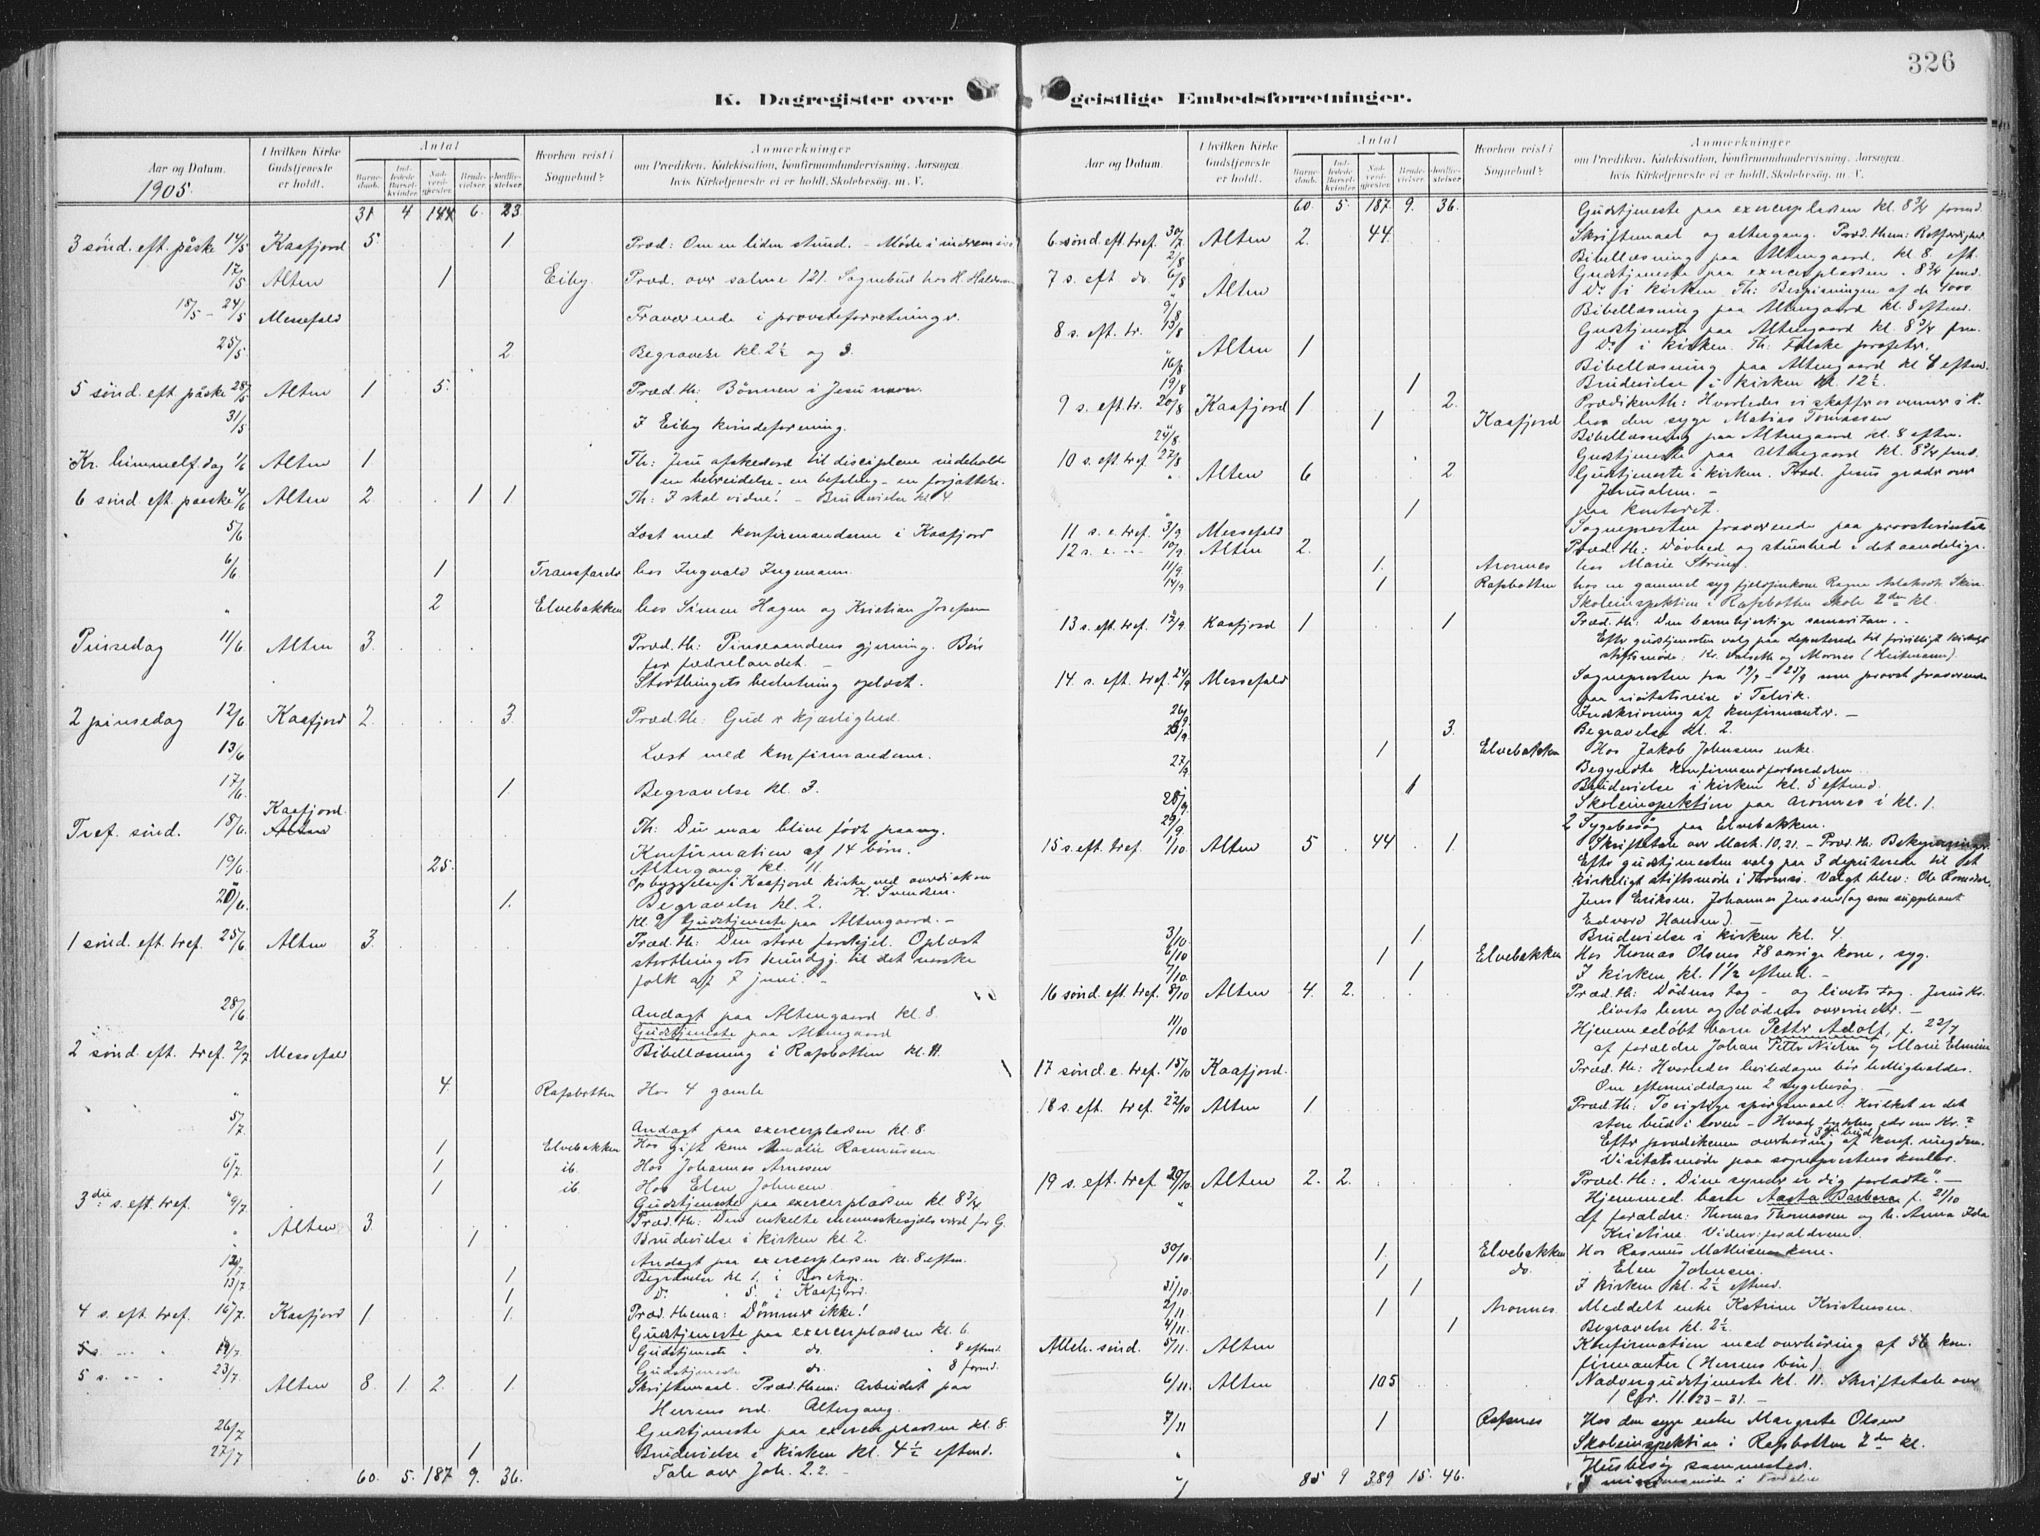 326
K. Dagregister over geistlige Embedsforretninger.
Aar og Datum.
1905.
I hvilken Kirke Gudstjeneste er holdt.
Antal
Barnedaab.
Indledede Barselkvinder.
Nadverdgjester.
Brudevielser.
Jordfæstelser.
Hvorhen reist i Sognebud?
Anmærkninger
om Prædiken, Katekisation, Konfirmandundervisning, Aarsagen,
hvis Kirketjeneste ei er holdt, Skolebesøg, m. V.
31 4 144 6 23
3 sønd. eft. påske 14/5 Kaafjord 5 1 Præd: Om en liden stund. – Møde i
17/5 Alten 1 Eiby Præd. over salme 121. Sognebud hos H.
18/5 – 24/5 Messefald Fraværende i provsteforretninger.
25/5 2 Begravelse kl. 2½ og 3.
5 sønd. eft. påske 28/5 Alten 1 5. Præd. th: Bønnen i Jesu navn.
31/5 I Eiby kvindeforening.
Kr. himmelf. dag 1/6 Alten 1 Th: Jesu afskedsord til disciplene indeholde
en bebreidelse – en befaling – en forjættelse.
6 sønd. eft. paaske 4/6 Alten 2 1 1 Th: I skal vidne! – Brudevielse kl 4
5/6 Læst med konfirmanderne i Kaafjord
6/6 1 hos Ingvald Ingemann.
" 2 Elvebakken hos Simen Hagen og Kristian Josefsen
Pinsedag 11/6 Alten 3. Præd. th: Pinseaandens gjerning. Bøn
for fædrelandet. –
Storthingets beslutning oplæst.
2 pinsedag 12/6 Kaafjord 2. 3. Præd. th: Gud er kjærlighed.
13/6 Læst med konfirmanderne.
17/6 1 Begravelse kl. 3.
Kaafjord
Tref. sønd. 18/6. Alten Th: Du maa blive født paany.
Konfirmation af 14 børn.
19/6 25. Altergang kl. 11.
Opbyggelse i Kaafjord kirke ved
K. Svendsen.
20/6. 1. Begravelse kl. 2.
Kl. 9 Gudstjeneste paa Altengaard. –
1 sønd. eft. tref. 25/6 Alten 3. Præd. th: Den store forskjel. Oplæst
storthingets kundgj. til det norske
folk af 7 juni. "
28/6 Andagt paa Altengaard kl. 8.
Gudstjeneste paa Altengaard
2 sønd. eft. tref. 2/7 Messefald Bibellæsning i Rafsbotten kl. 11.
" 4 Rafsbotten Hos 4 gamle
5/7. Andagt paa exercerpladsen kl. 8.
" 1 Elvebakken Hos gift kone Amalie Rasmussen
6/7. 1 ib. Hos Johannes Arnesen
1 ib. Hos Elen Johnsen
3die s. eft. tref. 9/7 Gudstjeneste paa exercerpladsen kl 8¾
" Alten 3 Præd. th: Den enkelte menneskesjæls værd for G.
1 Brudevielse i kirken kl. 2.
12/7 Andagt paa exercerpladsen kl. 8 eftm.
13/7 1 Begravelse kl. 1. i
1 Do. " 5. i Kaafjord.
4 s. eft. tref. 16/7. Kaafjord 1 1 Præd. thema: Dømmer ikke!
Gudstjeneste paa exercerpladsen kl. 6.
19/7. Gudstjeneste " do. " 8 eftmd.
5 s. – – " 23/7. Gudstjeneste do. " 8 formd.
Alten 8. 1. 2. 1. Skriftemaal. Præd. thema: Arbeidet paa
Herrens ord. Altergang.
26/7 Gudstjeneste paa exercerpladsen kl. 8.
27/7 1 Brudevielse i kirken kl. 4½ eftmd.
Tale over Joh. 2.2. –
60. 5. 187 9. 36.
Aar og Datum.
I hvilken Kirke Gudstjeneste er holdt.
Antal
Barnedaab.
Indledede Barselkvinder.
Nadverdgjester.
Brudevielser.
Jordfæstelser.
Hvorhen reist i Sognebud?
Anmærkninger
om Prædiken, Katekisation, Konfirmandundervisning, Aarsagen,
hvis Kirketjeneste ei er holdt, Skolebesøg, m. V.
60. 5. 187. 9. 36. Gudstjeneste paa exercerpladsen kl. 8¾ formd.
6. sønd. eft. tref. 30/7 Alten 2. 44. Skriftemaal og altergang. Præd. thema: Retfærdighed
2/8 Bibellæsning paa Altengaard kl. 8. eft.
7 s. eft do. 6/8 Gudstjeneste paa exercerpladsen. 8¾ fmd.
" Alten Do i kirken. Th: Bespisningen af de 4000
9/8 Bibellæsning paa Altengaard kl. 8 eftmd.
8 s. eft. tr. 13/8 Gudstjeneste paa Altengaard kl. 8¾ fm.
" Alten 1 Do i kirken. Th: Falske profeter.
16/8 Bibellæsning paa Altengaard kl 8 eftmd.
19/8 1 Brudevielse i kirken kl. 12½.
9 s. eft. tr. 20/8 Kaafjord 1 2. Prædikenth: Hvorledes vi skaffer os venner i H.
" 1 Kaafjord hos den syge Matias Tomassen
24/8 Bibellæsning paa Altengaard kl. 8 eftm.
10 s. eft. tref. 27/8 Gudstjeneste paa Altengaard kl. 8¾ fmd.
" Alten 6 2 Gudstjeneste i kirken. Præd. Jesus græder over
Jerusalem. –
" 1 paa kontoret.
11 s. e. tref. 3/9 Messefald Sognepresten fraværende paa provstevisitats
12 s. e. – " 10/9 Alten 2. Præd. th: Døvhed og stumhed i det aandelige.
11/9 1. Aronnes hos Marie Strøm.
14/9 1 Rafsbotten hos en gammel syg fjeldfinkone Ragne Aslaksdt.
Skoleinspektion i Rafsbotten skole 2den kl.
13 s. eft. tref. 17/9 Kaafjord 1 1 Præd. th: Den barmhjertige samaritan. –
Efter gudstjenesten valg paa deputerede til frivilligt kirkeligt
stiftsmøde: Kr. Falseth og Mornes (Heitmann).
14. s. eft. tref. 24/9 Messefald Sognepresten fra 19/9 – 25/9 som provst fraværende
paa visitatsreise i Talvik.
26/9 Indskrivning af konfirmanter. –
3. Begravelse kl. 2.
1 Elvebakken Hos Jakob Johnsens enke.
27/9 Begyndte konfirmandforberedelsen.
1 Brudevielse i kirken kl. 5 eftmd.
28/9 Skoleinspektion paa Aronnes i kl. 1.
29/9 2 Sygebesøg paa Elvebakken.
15 s. eft. tref. 1/10 Alten 5 44 1 Skriftetale over Mark. 10,21. – Præd. th: Bekymringer.
Efter gudstjenesten valg paa 3 deputerede til et
kirkeligt stiftsmøde i Tromsø. Valgt blev: Ole
Jens Eriksen. Johannes Jensen (og som suppleant
Edvard Hansen). –
3/10 1. Brudevielse i kirken kl. 4.
6/10 1 Elvebakken Hos Thomas Olsens 78 aarige kone, syg.
7/10. 1 I kirken kl. 1½ eftmd. –
16 sønd. eft. tref. 8/10 Alten 4. 2. Præd. th: Dødens tog – og livets tog. Jesus Kr.
livets herre og dødens overvinder. –
11/10 Hjemmedøbt barn Petter Adolf, f. 22/7
af forældre Johan Petter Nielsen og Marie Elmine
17 sønd. e. tref. 15/10 Kaafjord. Præd. th: Hvorledes hviledagen bør helligholdes.
Om eftermiddagen 2 sygebesøg. –
18 s. eft. tref. 22/10 Alten 1 Præd. th: To vigtige spørgsmaal: Hvilket er det
store bud i loven – Hvad tykkes eder om Kr.?
Efter prædikenen overhøring af konf. ungdom.
Visitatsmøde paa sogneprestens kontor.
19 s. eft. tref. 29/10 Alten 2. 2. Præd. th: "Dine synder er dig forladte".
" Hjemmed. barn Aasta Barbara f. 21/10
af forældre: Thomas Thomassen og h. Anna Ida
Kristine. Vidner: forældrene.
30/10 1. Elvebakken Hos Rasmus Mathisens kone.
1 do. Elen Johnsen.
31/10. 1 I kirken kl. 2½ eftmd.
2/11. 1 Aronnes Meddelt enke Katrine Kristensen.
4/11. 1 Begravelse kl. 2½.
Alleh. sønd. 5/11. Alten Konfirmation med overhøring af 56 kon-
firmanter (Herrens bøn).
6/11. Alten 105 Nadvergudstjeneste kl. 11. Skriftetale over
1 Cor. 11. 23 – 31. –
7/11 1 Rafsnes Hos den syge enke Margrete Olsen
" Skoleinspektion i Rafsbotten 2den kl.
Husbesøg sammested.
85 9 389 15. 46. " I missionsmøde i